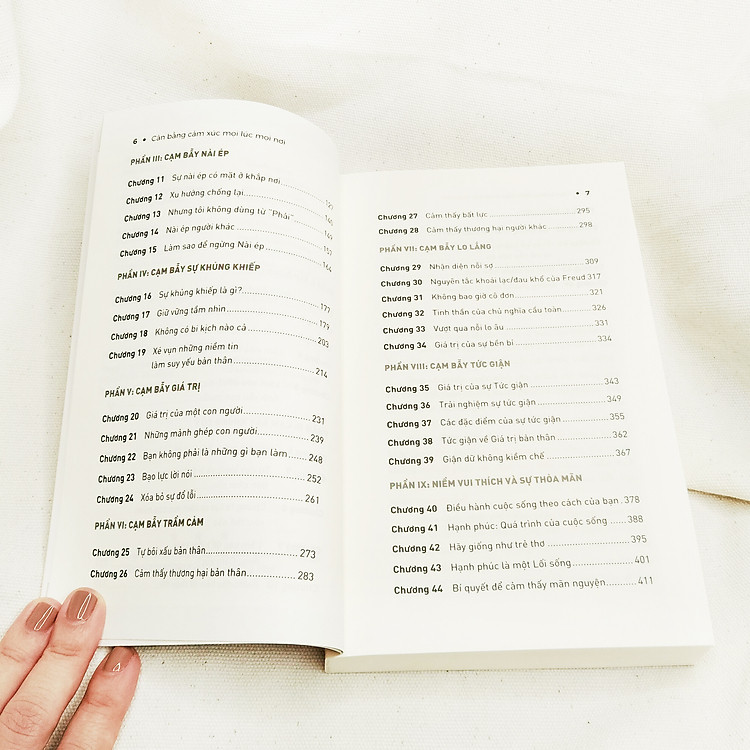 6 • Cân bằng cảm xúc mọi lúc mọi nơi
PHẦN III: CẠM BẪY NÀI ÉP
Chương 11 Sự nài ép có mặt ở khắp nơi
Chương 12 Xu hướng chống lại
Chương 13 Nhưng tôi không dùng từ "Phải" 149
Chương 14 Nài ép người khác 157
Chương 15 Làm sao để ngừng Nài ép 164
PHẦN IV: CẠM BẪY SỰ KHỦNG KHIẾP
Chương 16 Sự khủng khiếp là gì? 177
Chương 17 Giữ vững tầm nhìn 179
Chương 18 Không có bi kịch nào cả 203
Chương 19 Xé vụn những niềm tin
làm suy yếu bản thân 214
PHẦN V: CẠM BẪY GIÁ TRỊ
Chương 20 Giá trị của một con người 231
Chương 21 Những mảnh ghép con người 239
Chương 22 Bạn không phải là những gì bạn làm 248
Chương 23 Bạo lực lời nói 252
Chương 24 Xóa bỏ sự đổ lỗi 261
PHẦN VI: CẠM BẪY TRẦM CẢM
Chương 25 Tự bôi xấu bản thân 273
Chương 26 Cảm thấy thương hại bản thân 283
• 7
Chương 27 Cảm thấy bất lực 295
Chương 28 Cảm thấy thương hại người khác 298
PHẦN VII: CẠM BẪY LO LẮNG
Chương 29 Nhận diện nỗi sợ 309
Chương 30 Nguyên tắc khoái lạc/đau khổ của Freud 317
Chương 31 Không bao giờ cô đơn 321
Chương 32 Tinh thần của chủ nghĩa cầu toàn 326
Chương 33 Vượt qua nỗi lo âu 331
Chương 34 Giá trị của sự bền bỉ 334
PHẦN VIII: CẠM BẪY TỨC GIẬN
Chương 35 Giá trị của sự Tức giận 343
Chương 36 Trải nghiệm sự tức giận 349
Chương 37 Các đặc điểm của sự tức giận 355
Chương 38 Tức giận về Giá trị bản thân 362
Chương 39 Giận dữ không kiềm chế 367
PHẦN IX: NIỀM VUI THÍCH VÀ SỰ THỎA MÃN
Chương 40 Điều hành cuộc sống theo cách của bạn 378
Chương 41 Hạnh phúc: Quá trình của cuộc sống 388
Chương 42 Hãy giống như trẻ thơ 395
Chương 43 Hạnh phúc là một Lối sống 401
Chương 44 Bí quyết để cảm thấy mãn nguyện 411